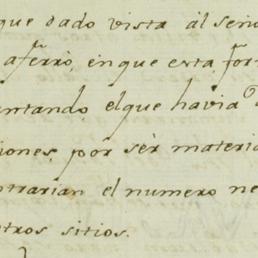 que dado vista al seño
aferró, en que esta for
ntando, el que havia d
iones, por ser materia
ntrarian el numero ne
tros sitios.